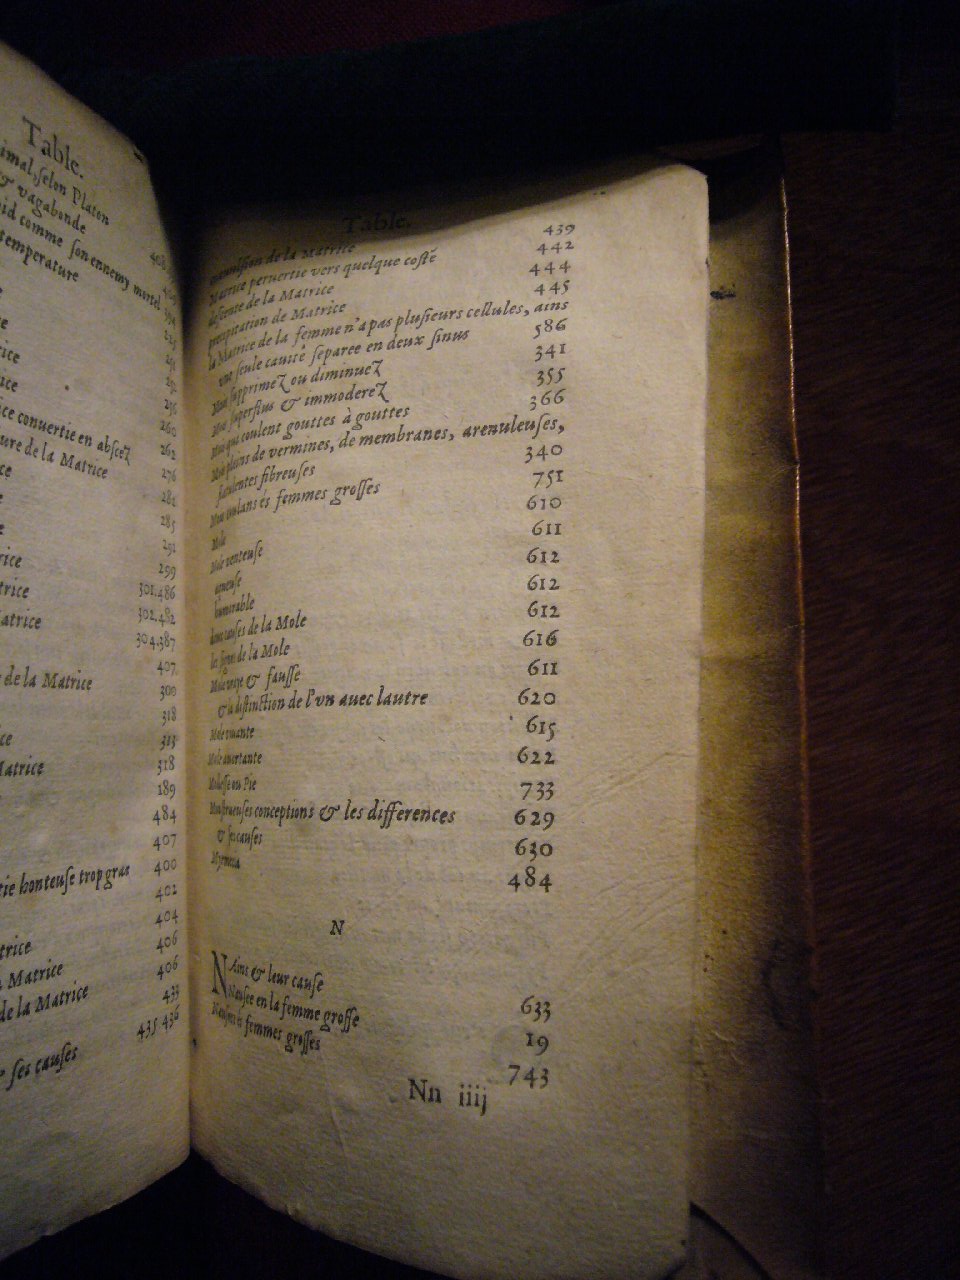 Table.
imal, selon Platon
& vagabonde
id comme son ennemy mortel
temperature
ce conuertie en abscez
ure de la Matrice
276
284
285
291
299
trice 301.486
atrice 302.482
304.387
407
de la Matrice 300
318
313
Matrice 318
189
484
407
ie honteuse trop gras 400
402
404
trice 406
a Matrice 406
de la Matrice 433
435 436
& ses causes
Table.
de la Matrice 439
Matrice peruertie vers quelque costé 442
descente de la Matrice 444
precipitation de Matrice 445
la Matrice de la femme n'a pas plusieurs cellules, ains
vne seule cauité separee en deux sinus 586
Mois supprimez ou diminuez 341
Mois superflus & immoderez 355
Mois qui coulent gouttes à gouttes 366
Mois pleins de vermines, de membranes, arenuleuses,
fibreuses 340
Mois coulans és femmes grosses 751
Mole 610
Mole venteuse 611
aqueuse 612
humorable 612
causes de la Mole 612
les signes de la Mole 616
Mole vraye & fausse 611
& la distinction de l'vn auec lautre 620
Mole viuante 615
Mole auortante 622
Molesse ou Pie 733
Monstrueuses conceptions & les differences 629
& ses causes 630
484
N
NAins & leur cause 633
Nausee en la femme grosse 19
és femmes grosses 743
Nn iiij